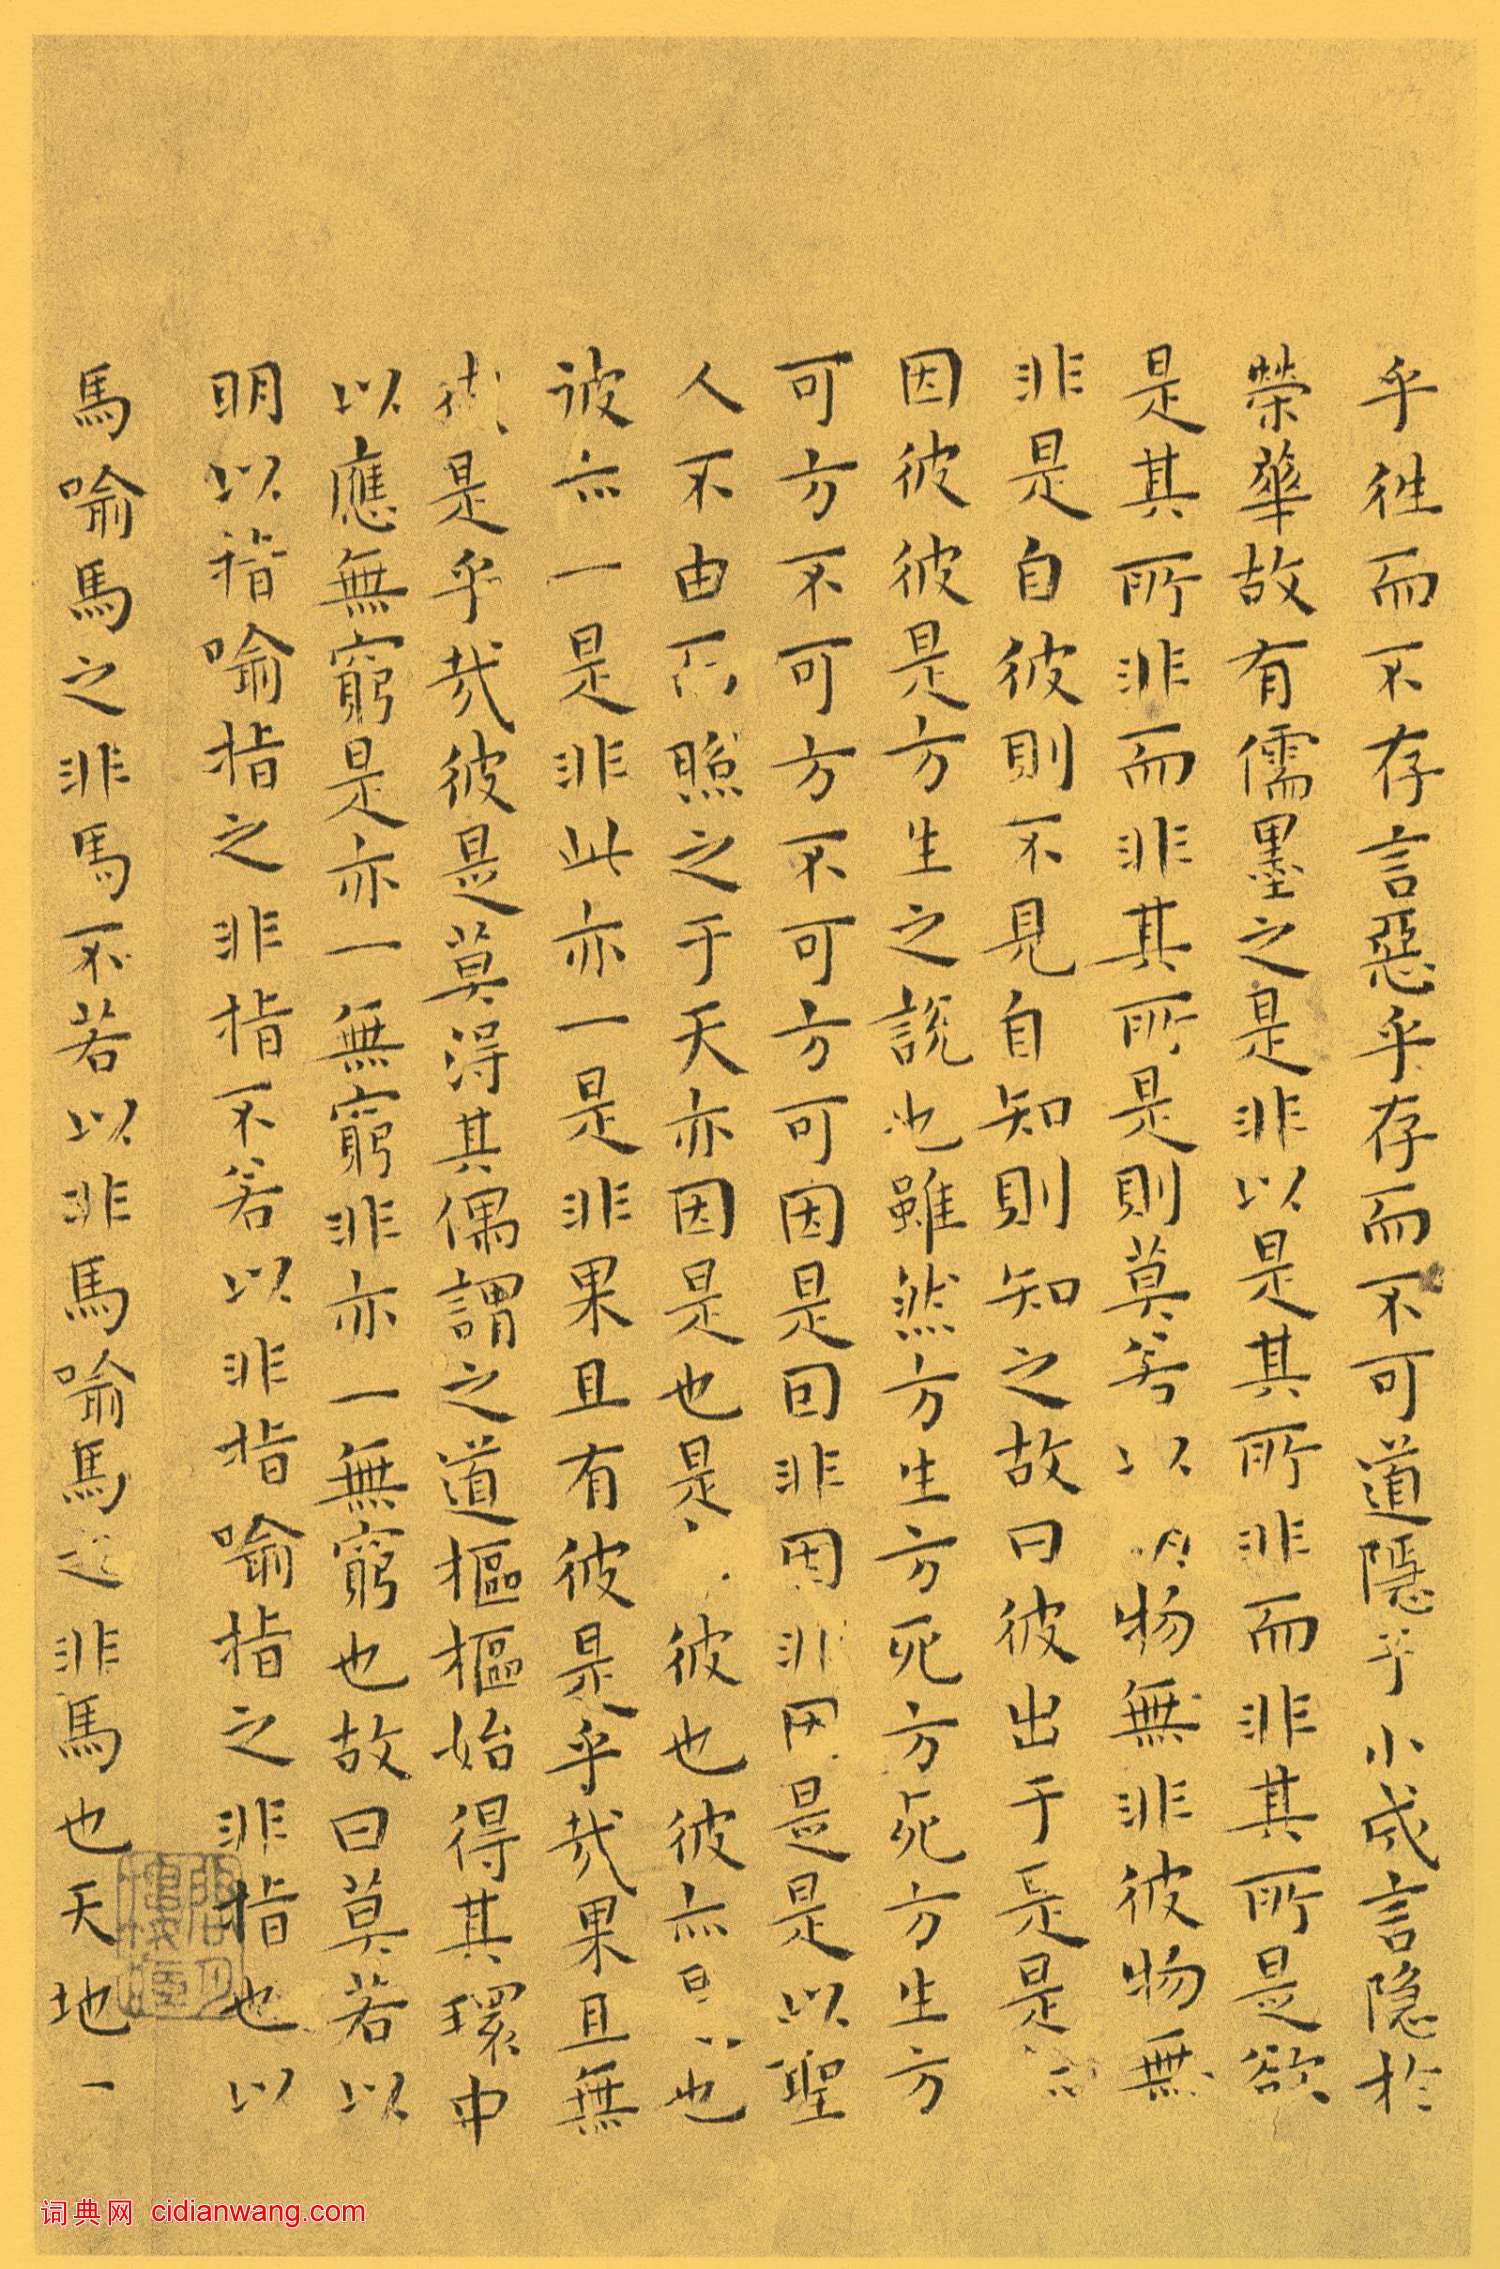 乎往而不存言惡乎存而不可道隱乎小成言隱於
榮華故有儒墨之是非以是其所非而非其所是欲
是其所非而非其所是則莫若以 物無非彼物無
非是自彼則不見自知則知之故曰彼出于是是
因彼彼是方生之說也雖然方生方死方死方生方
可方不可方不可方可因是因非因非因是是以聖
人不由而照之于天亦因是也是 彼也彼亦是也
彼亦一是非此亦一是非果且有彼是乎哉果且無
彼是乎哉彼是莫得其偶謂之道樞樞始得其環中
以應無窮是亦一無窮非亦一無窮也故曰莫若以
明以指喻指之非指不若以非指喻指之非指也以
馬喻馬之非馬不若以非馬喻馬之非馬也天地一
词典网 cidianwang.com